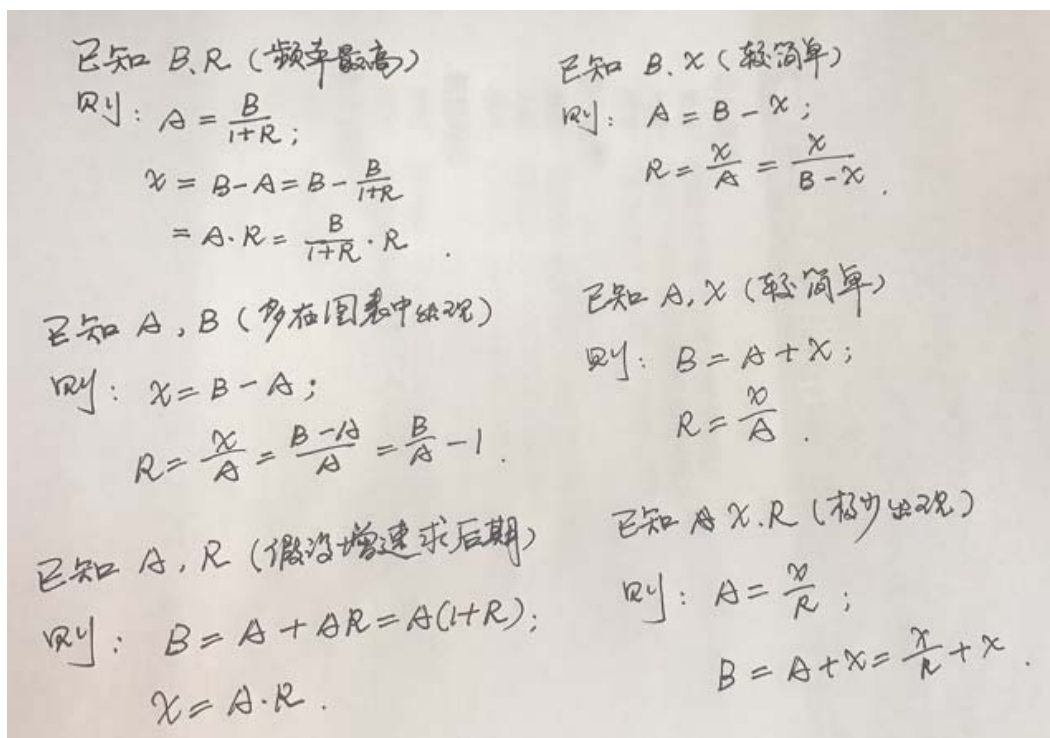 已知 B、R（频率最高）
则：A = B/(1+R)；
x = B-A = B - B/(1+R)
= A·R = B/(1+R)·R．
已知 A，B（多在图表中出现）
则：x = B - A；
R = x/A = (B-A)/A = B/A - 1．
已知 A，R（假设增速求后期）
则：B = A + AR = A(1+R)；
x = A·R．
已知 B、x（较简单）
则：A = B - x；
R = x/A = x/(B-x)．
已知 A，x（较简单）
则：B = A + x；
R = x/A．
已知 x、R（极少出现）
则：A = x/R；
B = A + x = x/R + x．